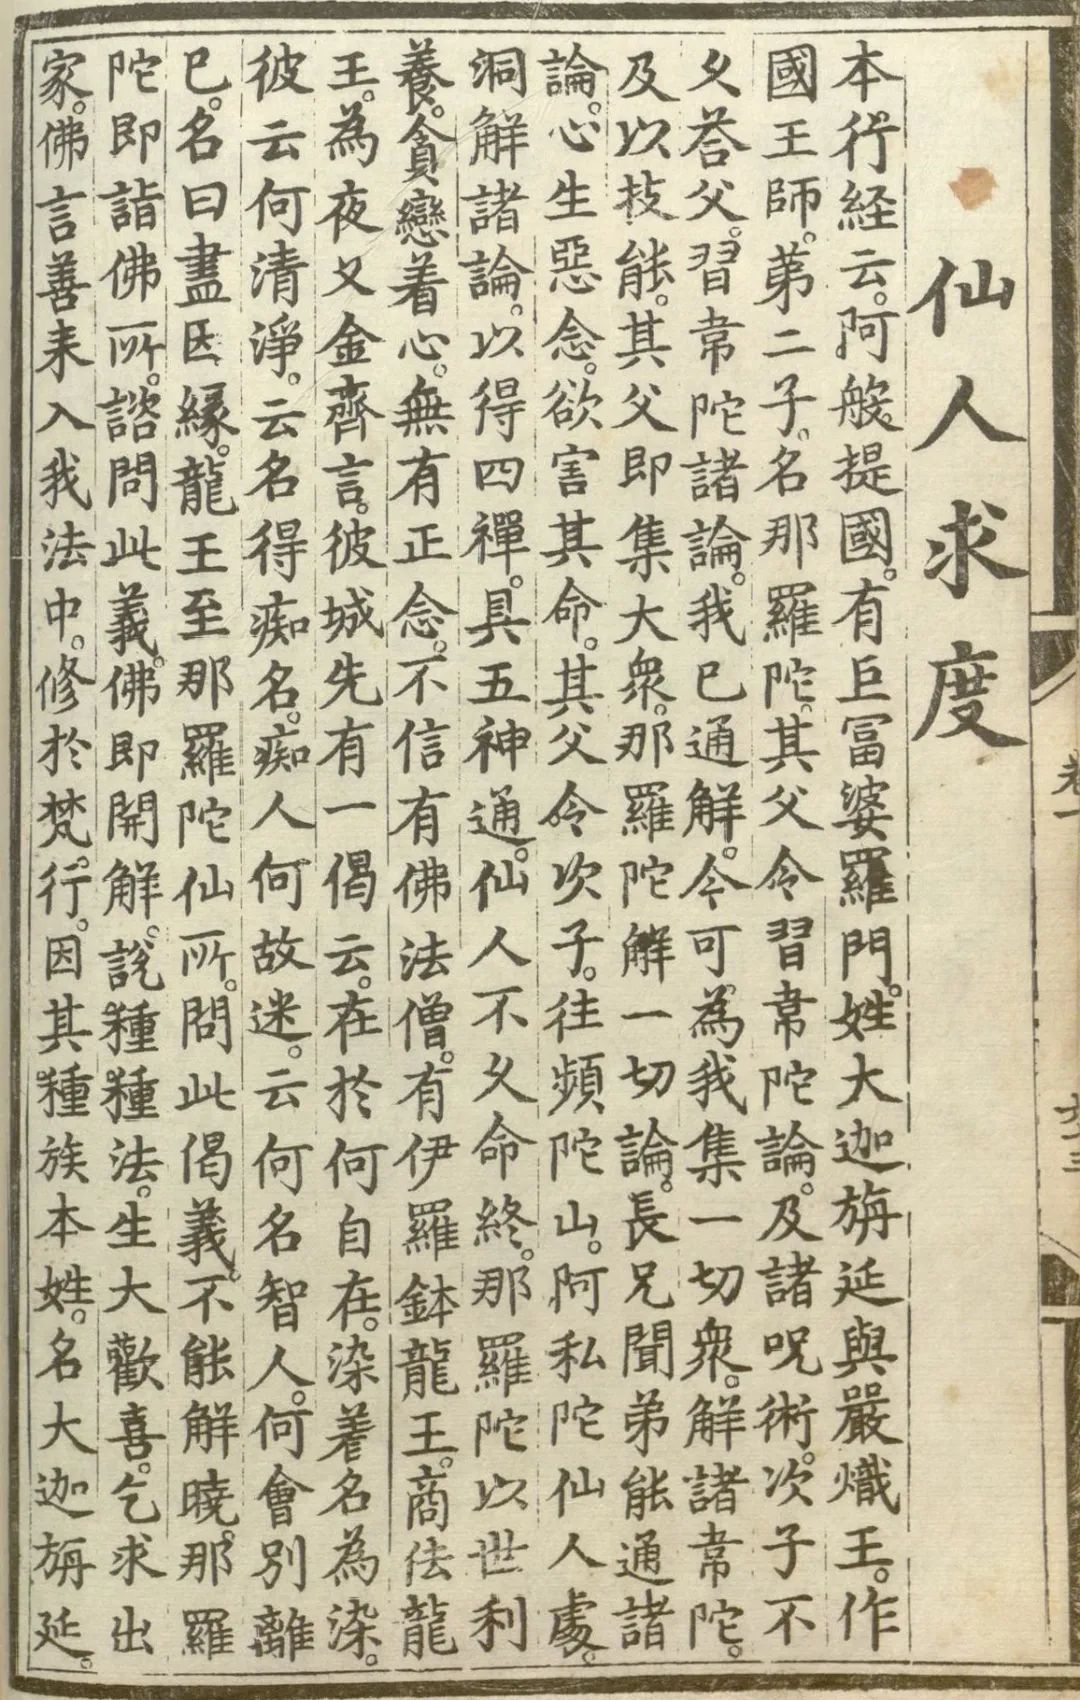 仙人求度
本行経云。阿般提國。有巨冨婆羅門。姓大迦旃延與嚴熾王。作
國王師。苐二子。名那羅陀。其父令習韋陀論。及諸呪術。次子不
乆荅父。習韋陀諸論。我已通解。今可為我集一切衆。解諸韋陀。
及以技能。其父即集大衆。那羅陀解一切論。長兄聞弟能通諸
論。心生惡念。欲害其命。其父令次子。往頻陀山。阿私陀仙人處。
洞解諸論。以得四禪。具五神通。仙人不乆命終。那羅陀以世利
養。貪戀着心。無有正念。不信有佛法僧。有伊羅鉢龍王。商佉龍
王。為夜叉金齊言。彼城先有一偈云。在於何自在。染着名為染。
彼云何清淨。云名得痴名。痴人何故迷。云何名智人。何會別離
已。名曰盡因縁。龍王至那羅陀仙所。問此偈義。不能解曉。那羅
陀即詣佛所。諮問此義。佛即開解。說種種法。生大歡喜。乞求出
家。佛言善来入我法中。修於梵行。因其種族本姓。名大迦旃延。
卷一